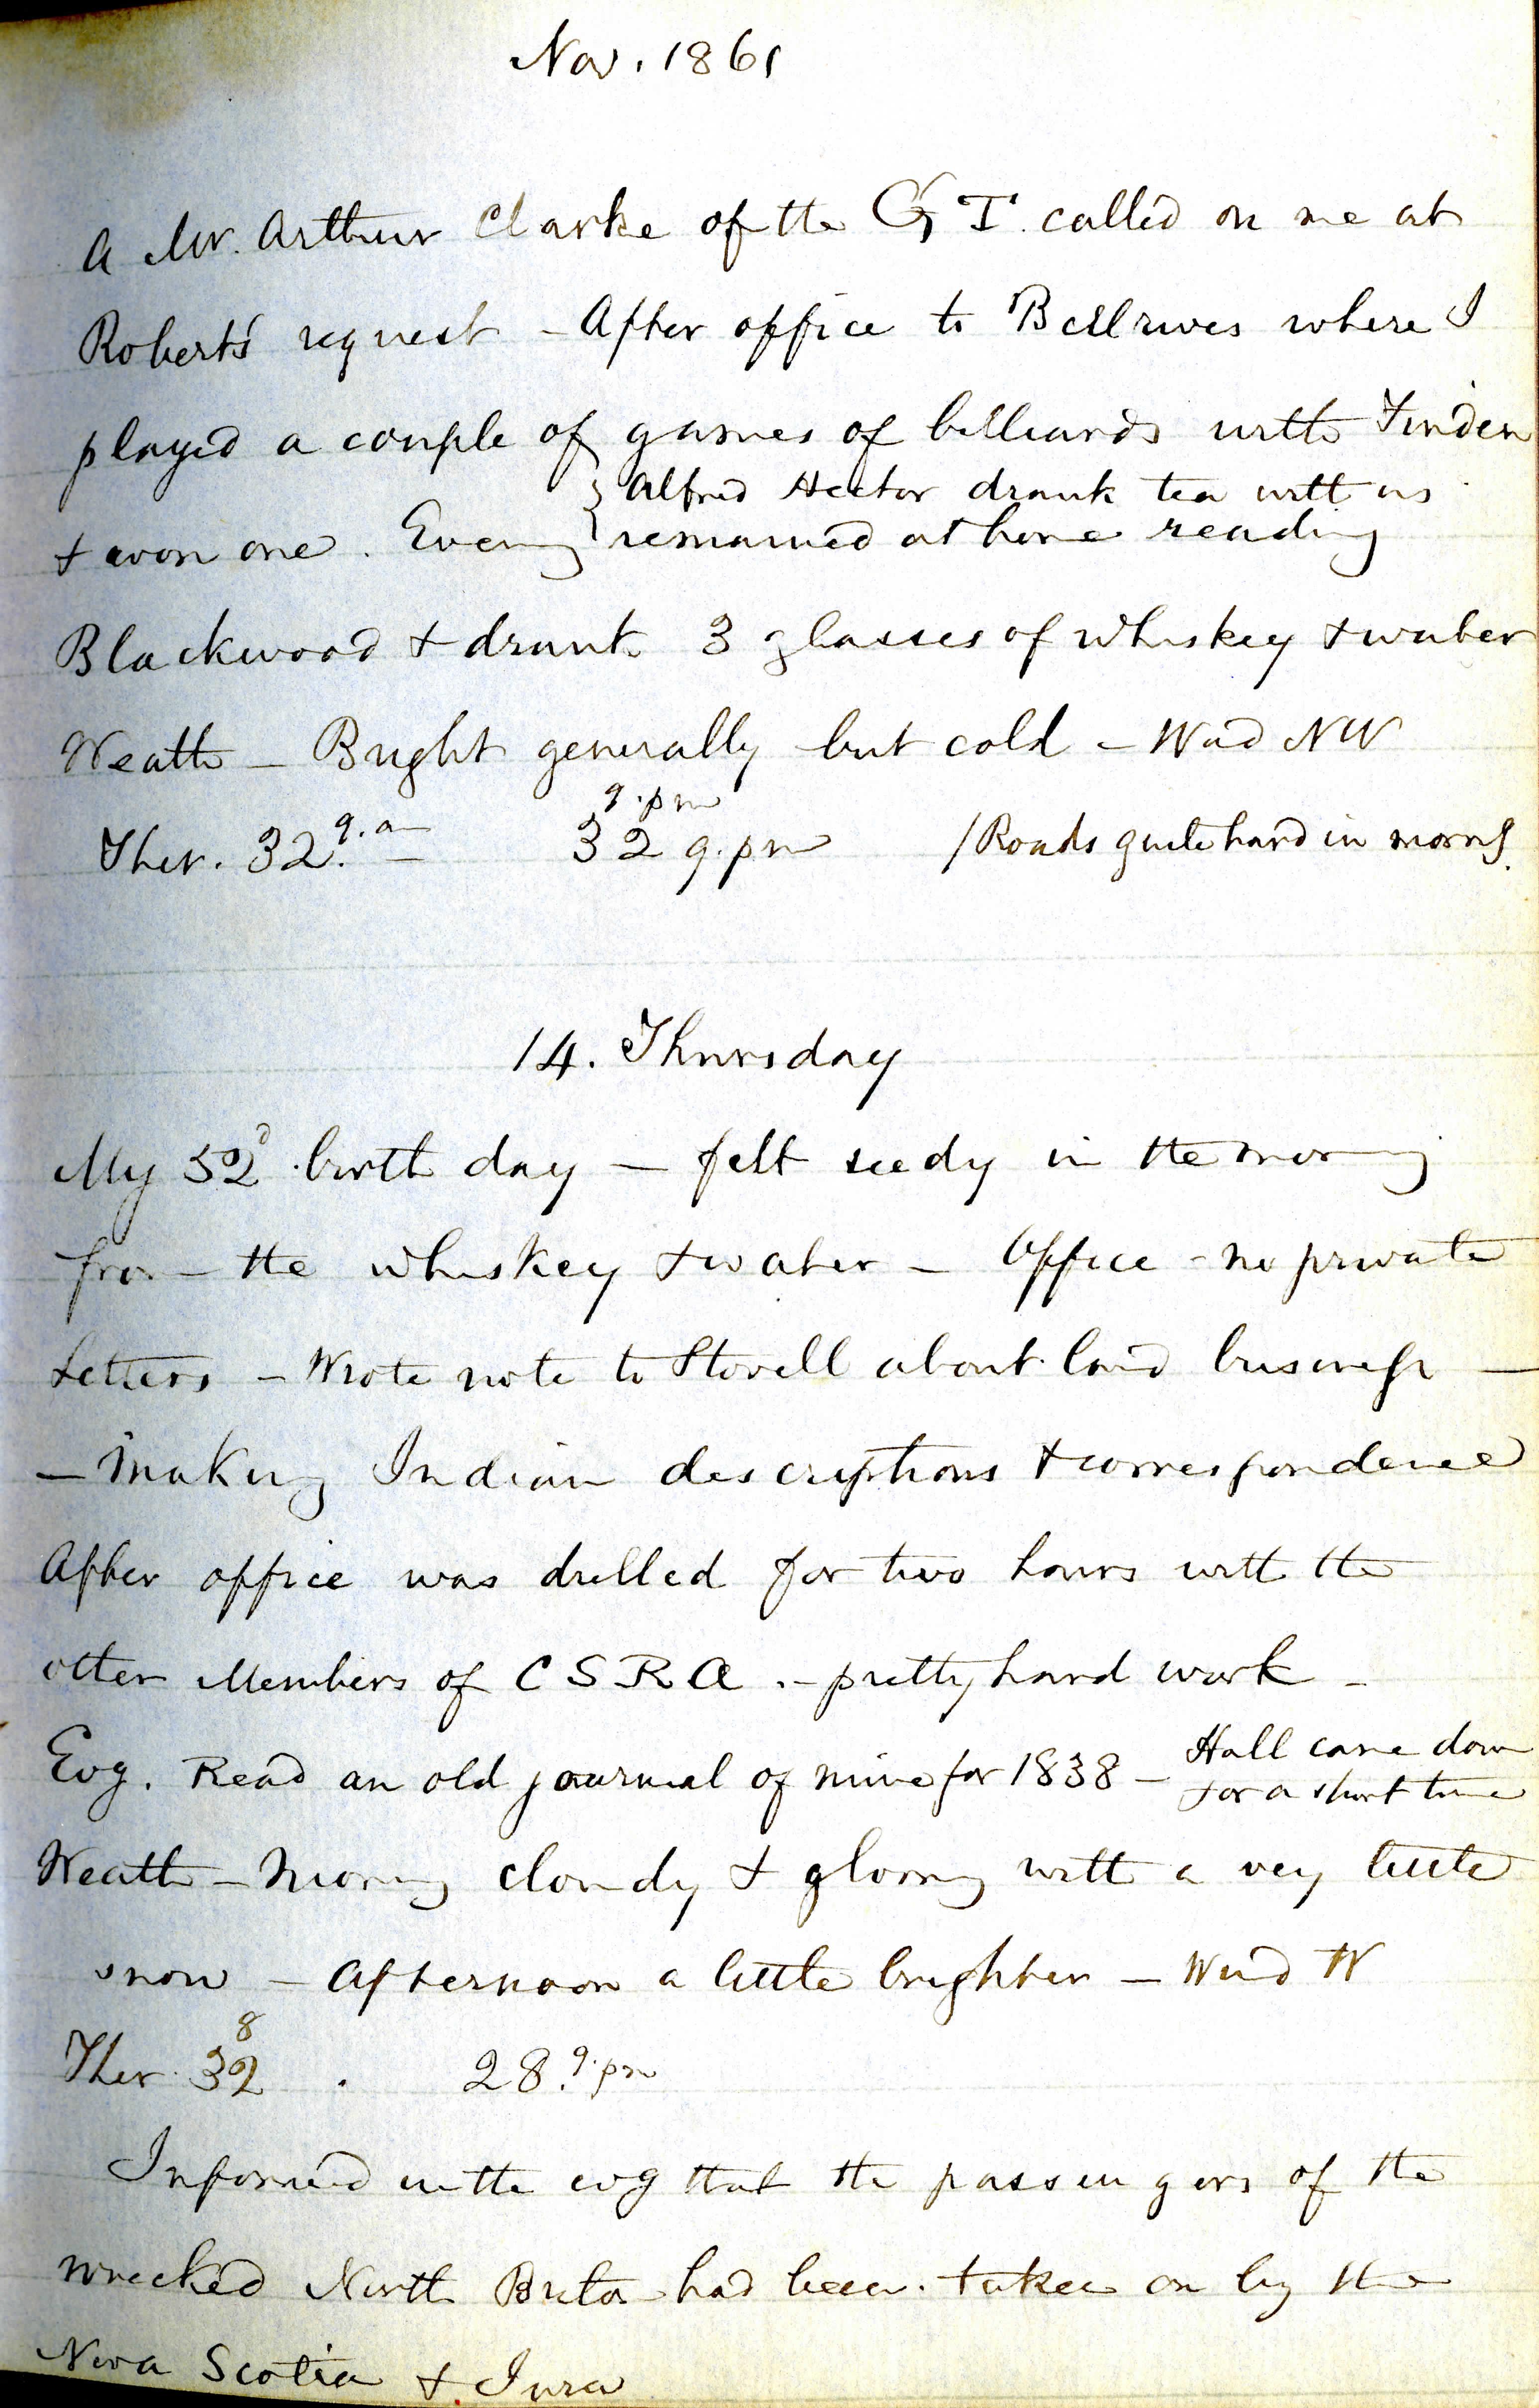 Nov. 1861
A Mr. Arthur Clarke of the G T. called on me at
Robert's request - After office to Bellrives where I
played a couple of games of billiards with Tinden
Alfred Hector drank tea with us
& won one. Evening remained at home reading
Blackwood & drank 3 glasses of whiskey & water
Weath - Bright generally but cold - Wind NW
9.pm
Ther. 32. 9.am 32 9.pm / Roads quite hard in morng.
14. Thursday
My 52d birth day - felt seedy in the morning
from the whiskey & water - Office - no private
Letters - Wrote note to Stovell about land business -
- making Indian descriptions & correspondence
After office was drilled for two hours with the
other Members of C S R A. - pretty hard work -
Evg. Read an old journal of mine for 1838 - Hall came down
for a short time
Weath - Morning cloudy & gloomy with a very little
snow - Afternoon a little brighter - Wind W
8
Ther. 32 . 28. 9.pm
Informed in the evg that the passengers of the
wrecked North Briton had been taken on by the
Nova Scotia & Jura